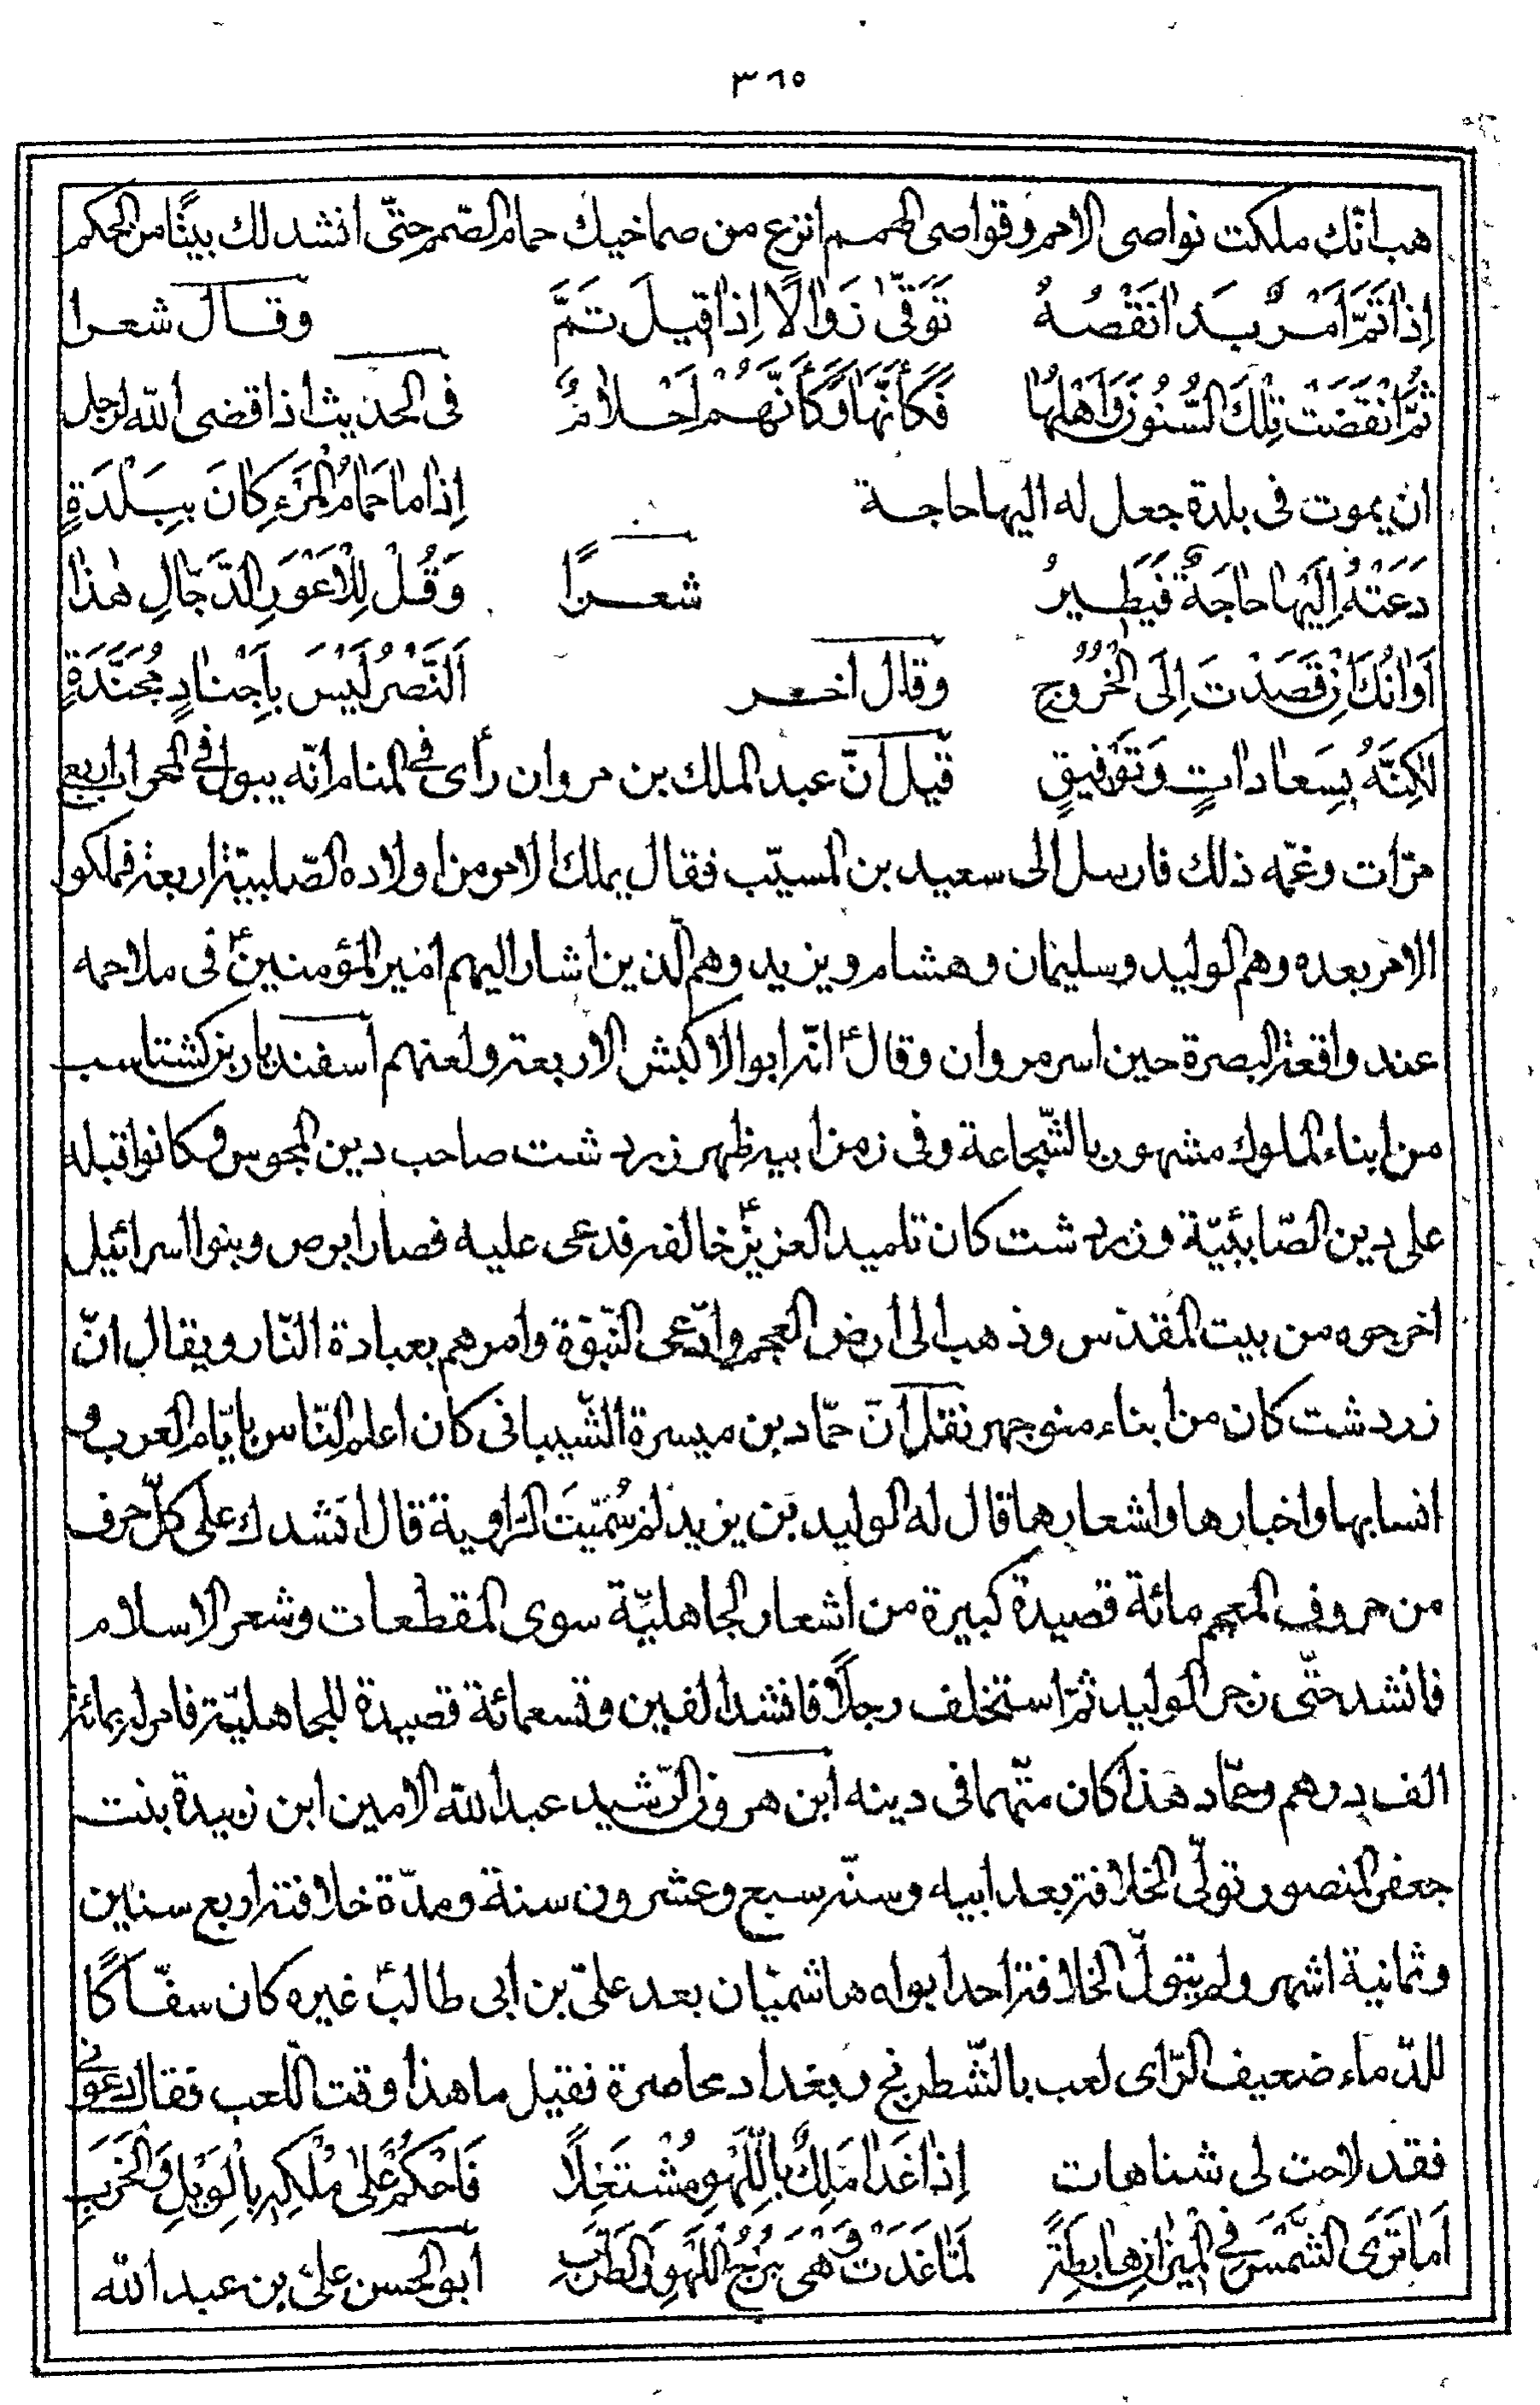 ٣٦٥
هب انّك ملكت نواصى الامم وقواصى الهمم انزع من صماخيك حمام الصّمم حتّى انشد لك بيتًا من الحكم
اِذٰا تَمَّ اَمْرٌ بَدٰا نَقْصُهُ تَوَقّىٰ زَوٰالًا اِذٰا قِيلَ تَمَّ وقال شعرا
ثُمَّ انْقَضَتْ تِلْكَ السُّنُونَ وَاَهْلُهٰا فَكَأَنَّهٰا وَكَأَنَّهُمْ اَحْلٰامٌ فى الحديث اذا قضى اللّه لرجل
ان يموت فى بلدة جعل له اليها حاجة اِذٰا مٰا حَمٰامُ الْمَرْءِ كٰانَ بِبَلْدَةٍ
دَعَتْهُ اِلَيْهٰا حٰاجَةٌ فَيَطِيرُ شعرًا وَقُلْ لِلْاَعْوَرِ الدَّجّٰالِ هٰذٰا
اَوٰانُكَ اِنْ قَصَدْتَ اِلَى الْخُرُوجِ وقال اخر اَلنَّصْرُ لَيْسَ بِاَجْنٰادٍ مُجَنَّدَةٍ
لٰكِنَّهُ بِسَعٰادٰاتٍ وَتَوْفِيقٍ قيل انّ عبد الملك بن مروان رأى فى المنام انّه يبول فى المحراب اربع
مرّات وغمّه ذلك فارسل الى سعيد بن المسيّب فقال يملك الامر من اولاده الصّلبيّة اربعة فملكوا
الامر بعده وهم الوليد وسليمان وهشام ويزيد وهم الّذين اشار اليهم امير المؤمنين ع فى ملاحمه
عند واقعة البصرة حين اسر مروان وقال ع انّه ابو الاكبش الاربعة ولعنهم اسفنديار بن كشتاسب
من ابناء الملوك مشهور بالشّجاعة وفى زمن ابيه ظهر زردشت صاحب دين المجوس وكانوا قبله
على دين الصّابئيّة وزردشت كان تلميد العزيز ع خالفه فدعى عليه فصار ابرص وبنوا اسرائيل
اخرجوه من بيت المقدّس وذهب الى ارض العجم وادّعى النّبوّة وامرهم بعبادة النّار ويقال انّ
زردشت كان من ابناء منوجهر نقل انّ حمّاد بن ميسرة الشّيبانى كان اعلم النّاس بايّام العرب و
انسابها واخبارها واشعارها قال له الوليد بن يزيد لم سُمّيتَ الرّاوية قال انشدك على كلّ حرف
من حروف المعجم مائة قصيدة كبيرة من اشعار الجاهليّة سوى المقطعات وشعر الاسلام
فانشد حتّى ضجر الوليد ثمّ استخلف رجلًا فانشد الفين وتسعمائة قصيدة للجاهليّة فامر له بمائة
الف درهم وحمّاد هذا كان متّهما فى دينه ابن هرون الرّشيد عبد اللّه الامين ابن زبيدة بنت
جعفر المنصور تولّى الخلافة بعد ابيه وسنّه سبع وعشرون سنة ومدّة خلافته اربع سنين
وثمانية اشهر ولم يتولّ الخلافة احد ابواه هاشميّان بعد علىّ بن ابى طالب ع غيره كان سفّاكا
للدّماء ضعيف الرّاى لعب بالشّطرنج وبغداد محاصرة فقيل ما هذا وقت اللّعب فقال دعونى
فقد لاحت لى شناهات اِذٰا غَدٰا مَلِكٌ بِاللَّهْوِ مُشْتَغِلًا فَاحْكُمْ عَلىٰ مُلْكِهِ بِالْوَيْلِ وَالْخَرَبِ
اَمٰا تَرَى الشَّمْسَ فِى الْمِيزٰانِ هٰابِطَةً لَمّٰا غَدَتْ وَهْىَ بُرْجُ اللَّهْوِ وَالطَّرَبِ ابو الحسن علىّ بن عبد اللّه